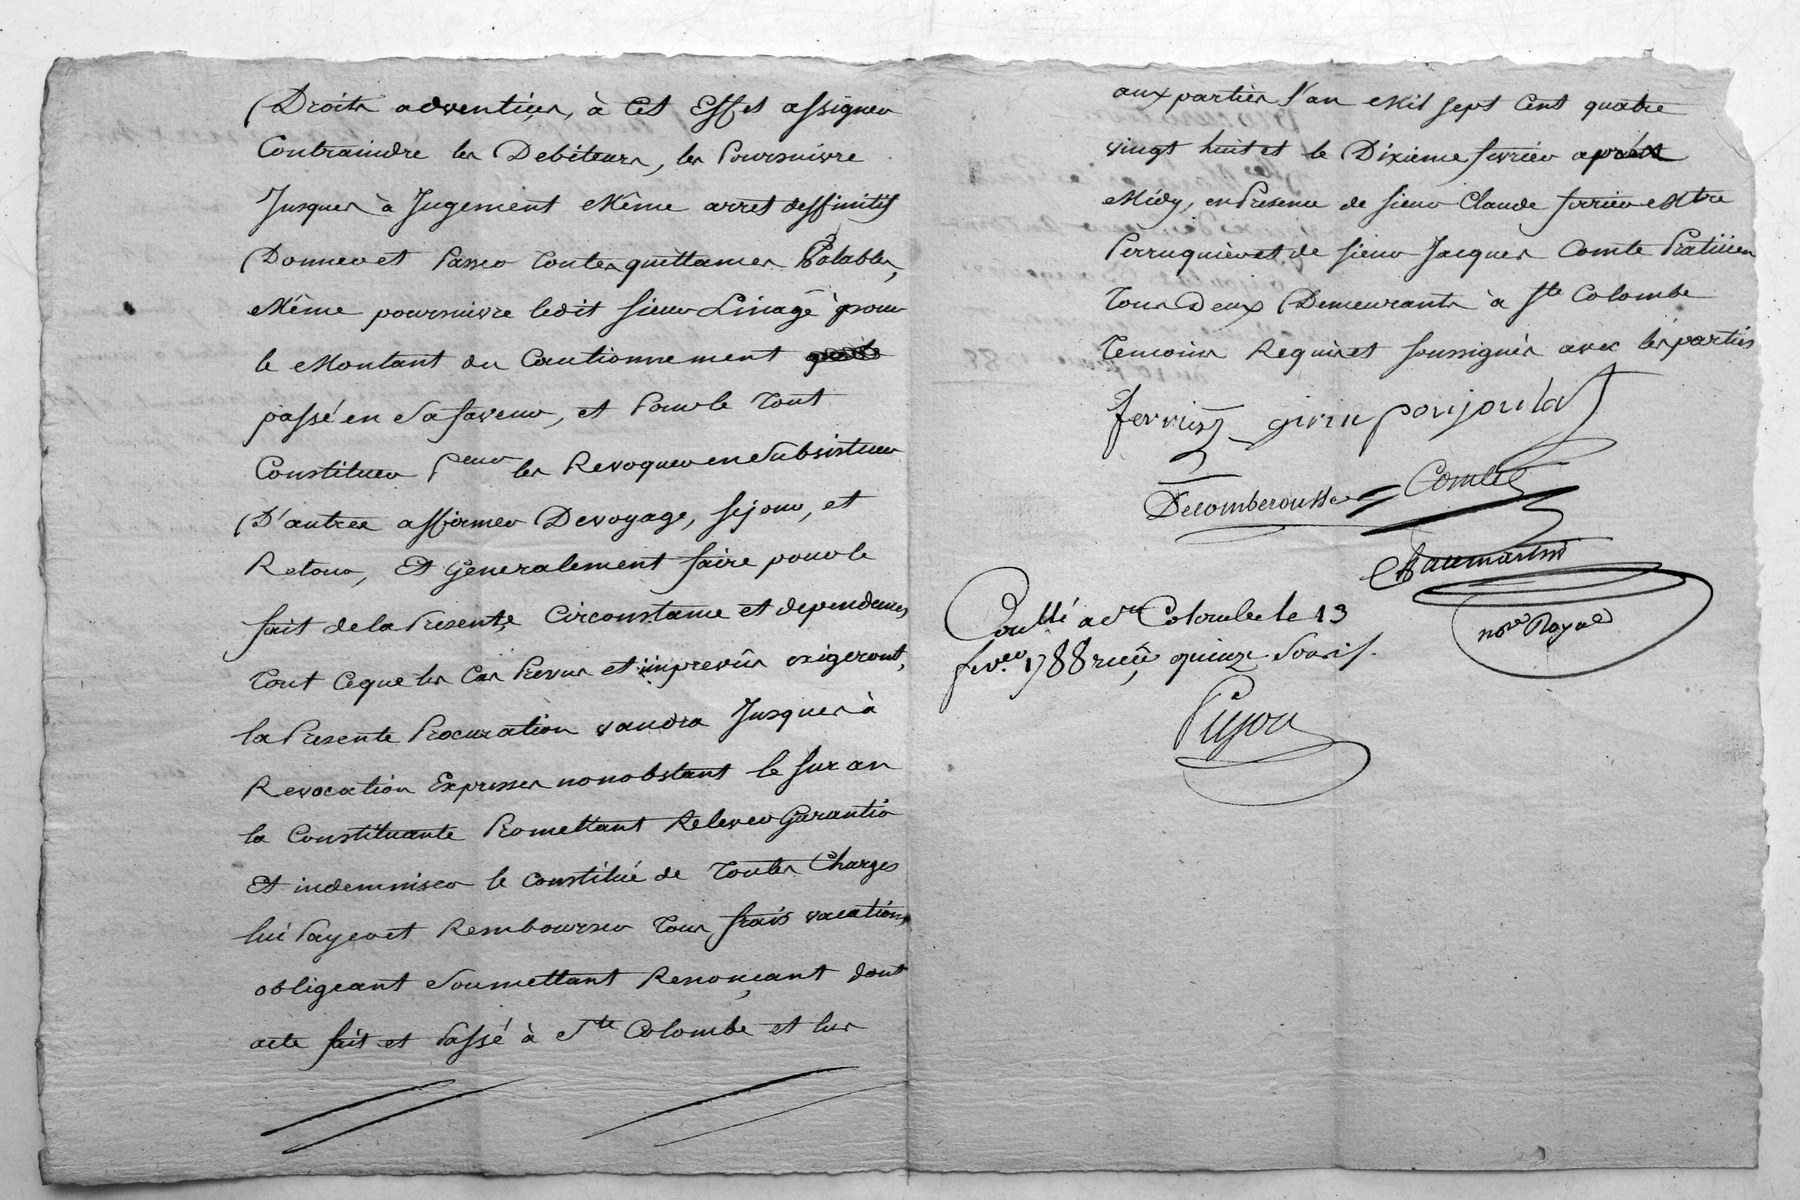 Droits adventices, à Cet Effet assigner
Contraindre les Debiteurs, les Poursuivre
Jusques à Jugement Même arret deffinitif
Donner et Passer toutes quittances Valables,
Même poursuivre ledit sieur Linage pour
le Montant du Cautionnement
passé en sa faveur, et Pour le tout
Constituer Peur les Revoquer en subsistuer
D'autres affirmer De voyage, sejour, et
Retour, Et Generalement faire pour le
fait de la Presente, Circonstance et dependances
tout Ceque les Cas Prevus et imprevûs exigeront,
la Presente Procuration vaudra Jusques à
Revocation Expresses nonobstant le suran
la Constituante Promettant Relever Garantir
Et indemniser le Constitué de toutes Charges
lui Payer et Rembourser tous frais vacations
obligeant soumettant Renonçant dont
acte fait et Passé à Ste Colombe et lus
aux parties l'an Mil sept Cent quatre
vingt huit et le Dixieme fevrier après
Midy, en Presence de sieur Claude ferrier Mtre
Perruquier et de sieur Jacques Comte Praticien
tous Deux Demeurants à Ste Colombe
temoins Requis et soussignés avec les parties
ferrier girin poujoulat
Decomberousse Comte
Chaumartin
nore Royal
Conllé a Ste Colombe le 13
fevrer 1788 reçû quinze sous